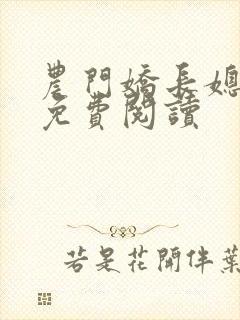 農門嬌長媳
免費閱讀
若是花開伴葉